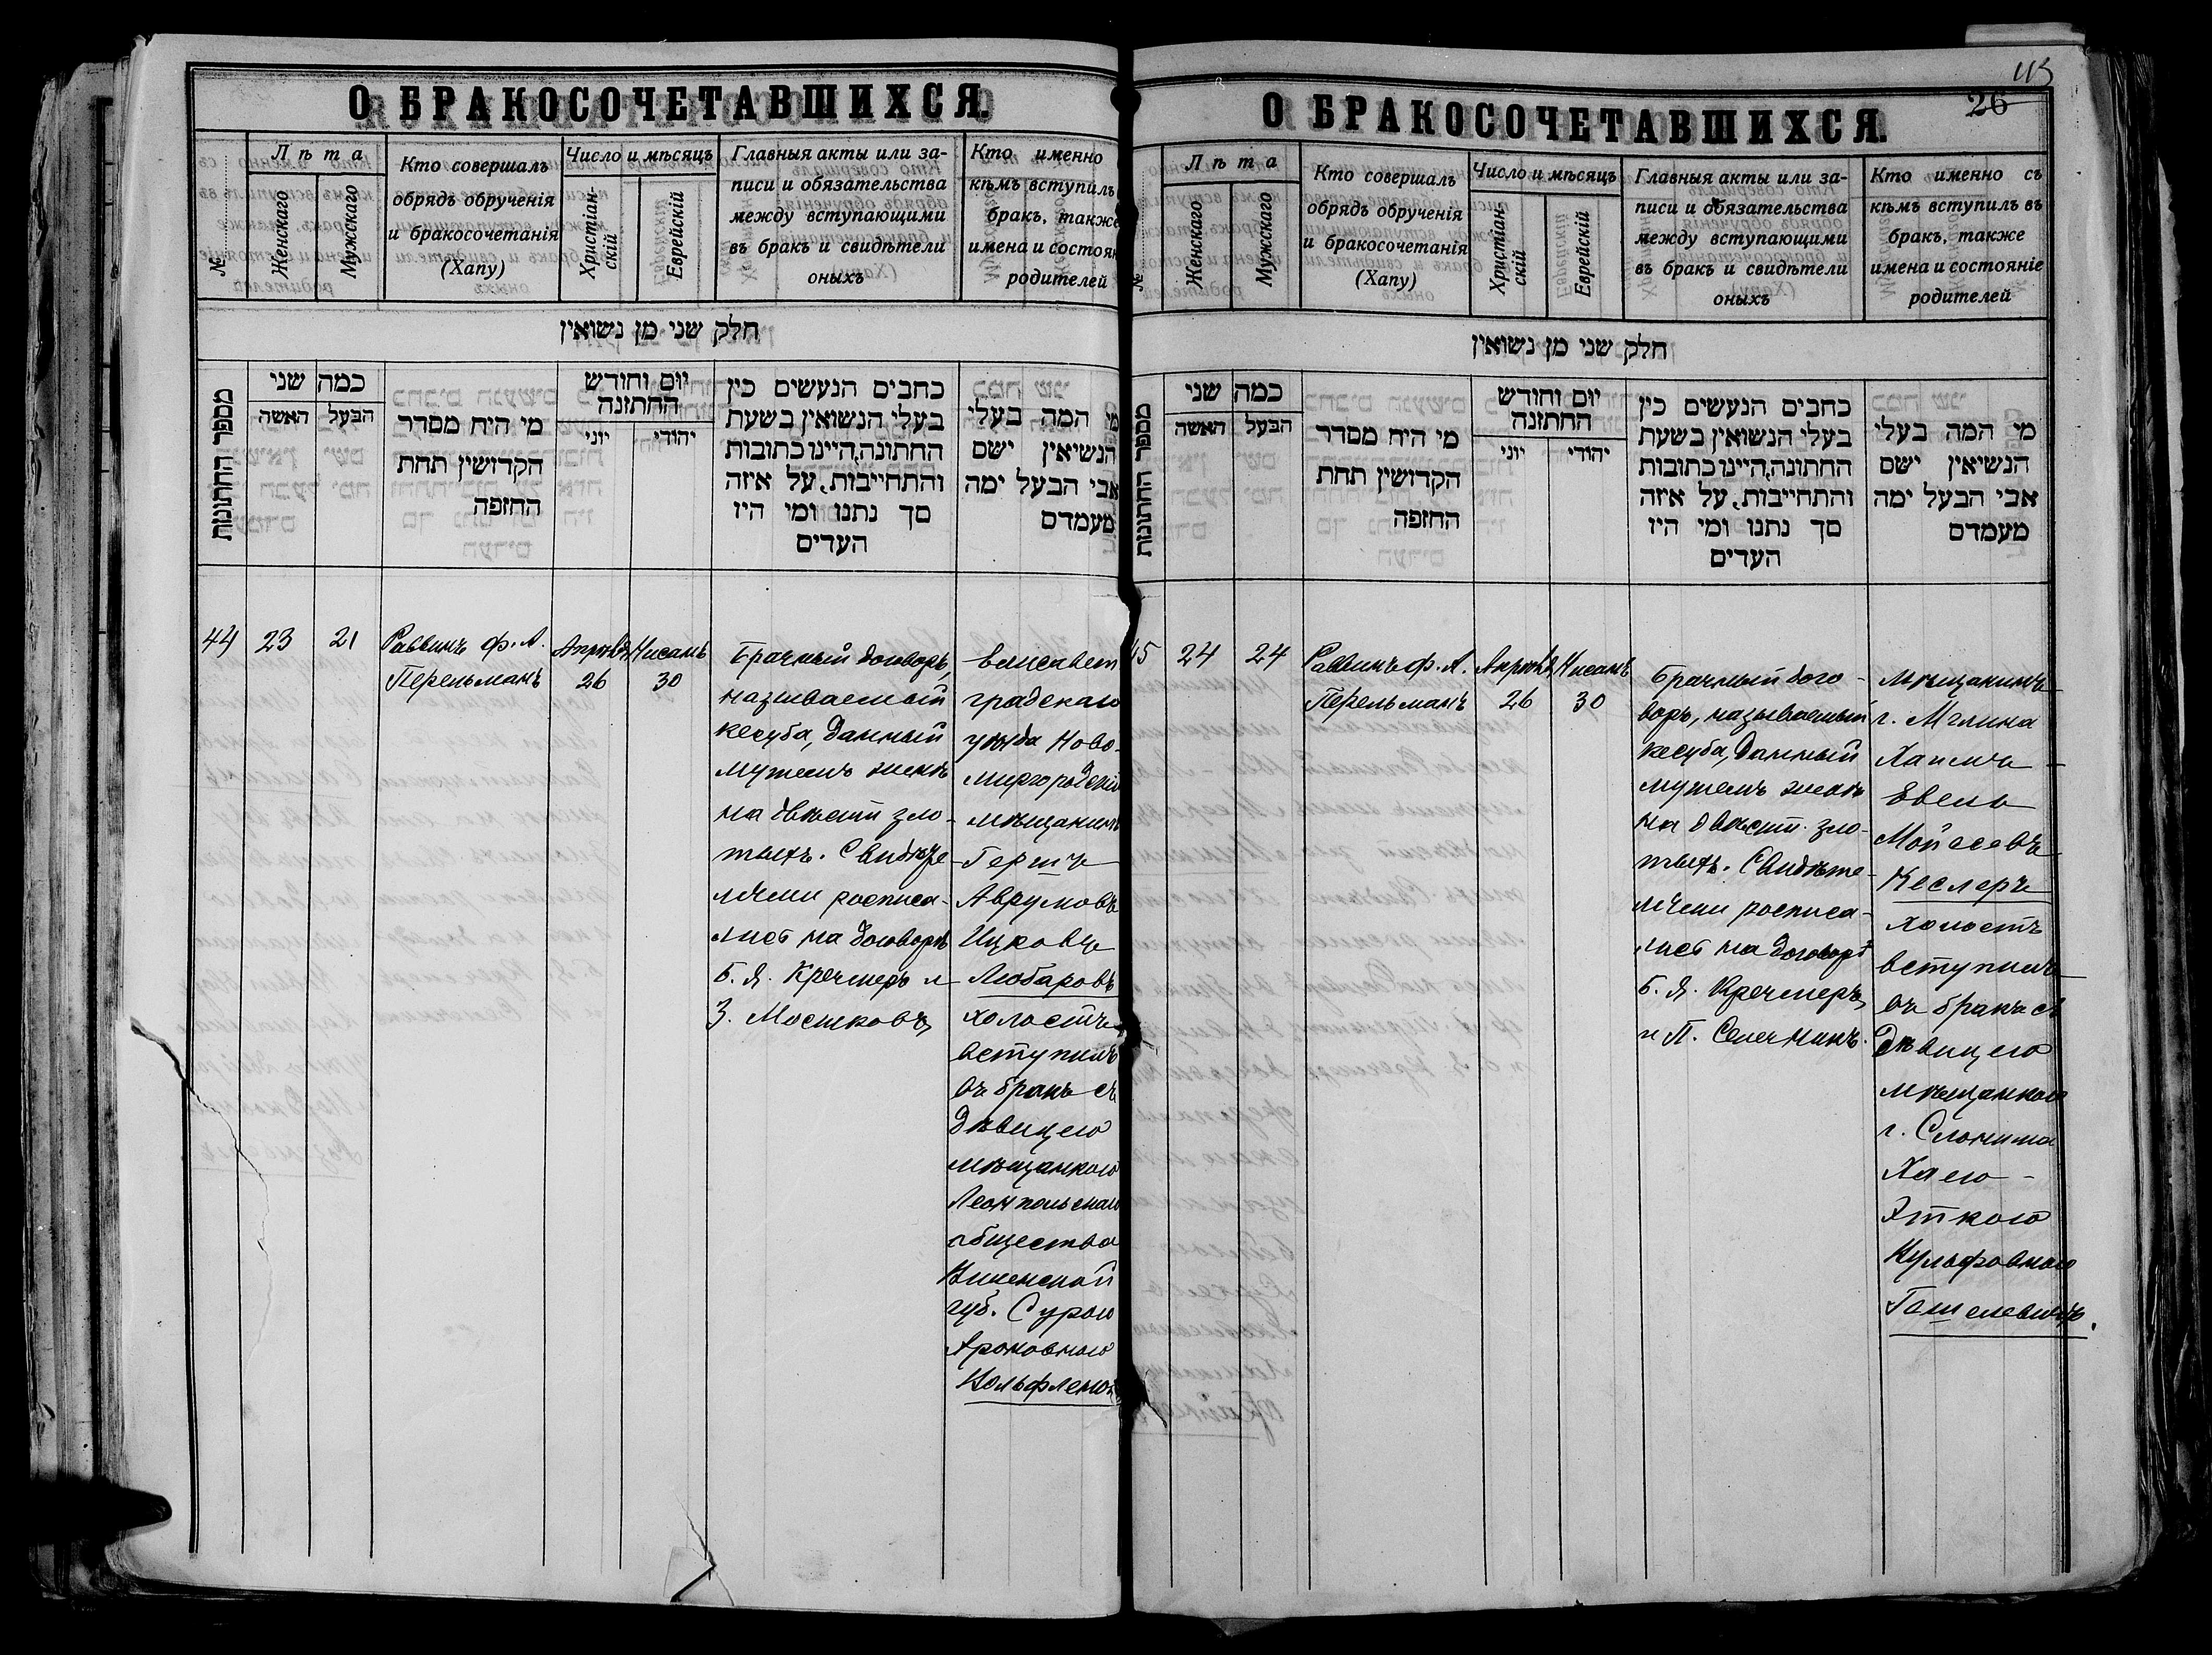 О БРАКОСОЧЕТАВШИХСЯ.
№
Лѣта
Женскаго
Мужскаго
Кто совершалъ
обрядъ обрученія
и бракосочетанія
(Хапу)
Число и мѣсяцъ
Христіан-
скій
Еврейскій
Главныя акты или за-
писи и обязательства
между вступающими
въ бракъ и свидѣтели
оныхъ
Кто именно
кѣмъ вступилъ
бракъ, также
имена и состоян
родителей
חלק שני מן נשואין
מספר החתונות
כמה שני
האשה
הבעל
מי היח מסדר
הקדושין תחת
החופה
יום וחודש
החתונה
יוני
יהודי
כחבים הנעשים כין
בעלי הנשואין בשעת
החתונה, היינו כתובות
והתחייבות, על איזה
סך נתנו ומי היו
העדים
מי המה בעלי
הנשיאין ישם
אבי הבעל ימה
מעמדם
44
23
21
Раввинъ ф. А.
Перельманъ
Апрѣль
26
Нисанъ
30
Брачный договоръ,
называемый
кесуба, данный
мужемъ женѣ
на двѣсти зло-
тыхъ. Свидѣте-
лями росписа-
лись на договорѣ
Б. Я. Кречмеръ и
З. Мошковъ
Елисавет
градскаго
уѣзда Ново-
миргородскій
мѣщанинъ
Гершъ
Аврумовъ
Ицковъ
Любаровъ
холостъ
вступилъ
въ бракъ съ
дѣвицею
мѣщанкою
Леонпольскаго
общества
Виленской
губ. Сурою
Ароновною
Вольфлено
115
26
О БРАКОСОЧЕТАВШИХСЯ.
№
Лѣта
Женскаго
Мужскаго
Кто совершалъ
обрядъ обрученія
и бракосочетанія
(Хапу)
Число и мѣсяцъ
Христіан-
скій
Еврейскій
Главныя акты или за-
писи и обязательства
между вступающими
въ бракъ и свидѣтели
оныхъ
Кто именно съ
кѣмъ вступилъ въ
бракъ, также
имена и состояніе
родителей
חלק שני מן נשואין
מספר החתונות
כמה שני
האשה
הבעל
מי היח מסדר
הקדושין תחת
החופה
יום וחודש
החתונה
יוני
יהודי
כחבים הנעשים כין
בעלי הנשואין בשעת
החתונה, היינו כתובות
והתחייבות, על איזה
סך נתנו ומי היו
העדים
מי המה בעלי
הנשיאין ישם
אבי הבעל ימה
מעמדם
45
24
24
Раввинъ ф. А.
Перельманъ
Апрѣль
26
Нисанъ
30
Брачный дого-
воръ, называемый
кесуба, данный
мужемъ женѣ
на двѣсти зло-
тыхъ. Свидѣте-
лями росписа-
лись на договорѣ
Б. Я. Кречмеръ
и П. Селечникъ.
Мѣщанинъ
г. Мглина
Хаимъ-
Евель
Мойсеевъ
Кеслеръ
холостъ
вступилъ
въ бракъ съ
дѣвицею
мѣщанкою
г. Слонима
Хаею-
Эткою
Вульфовною
Гошелевичъ.